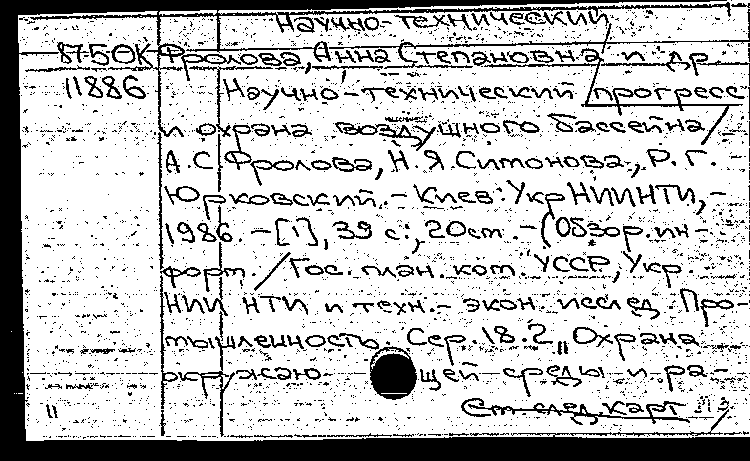 Научно-технический
87-5ОК Фролова, Анна Степановна и др.
11886 Научно-технический прогресс
и охрана воздушного бассейна /
А.С. Фролова, Н.Я. Симонова, Р.Г.
Юрковский. - Киев: УкрНИИНТИ, -
1986. - [1], 39 с.; 20 см. - (Обзор. ин-
форм. / Гос. план. ком. УССР, Укр.
НИИ НТИ и техн.- экон. исслед. Про-
мышленность. Сер. 18.2 "Охрана
окружаю- щей среды и ра-
См след. карт
11